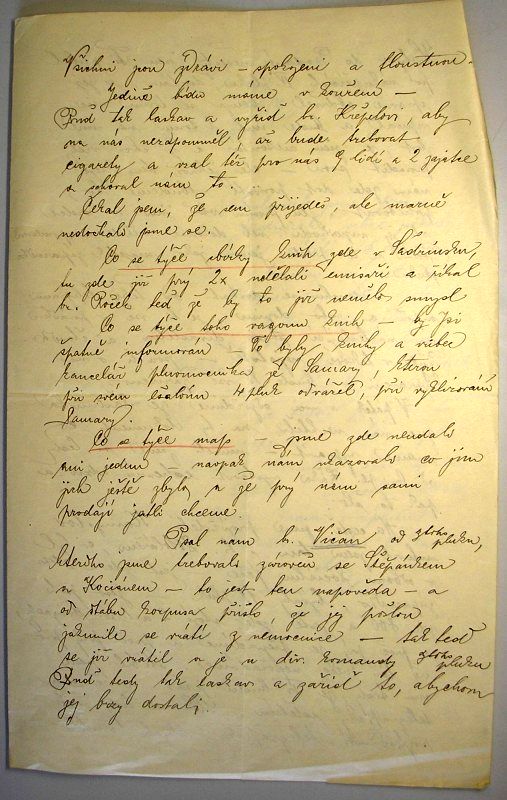 Všichni jsou zdrávi – spokojeni a tloustnou.
Jedině bídu máme v kouření –
Buď tak laskav a vyřiď br. Křepelovi, aby
na nás nezapomněl, až bude trebovat
cigarety a vzal též pro nás 9 lidí a 2 zajatce
a schoval nám to.
Čekal jsem, že sem přijedeš, ale marně
nedočkali jsme se.
Co se týče sbírky knih zde v Šadrinsku,
tu zde již prý 2x nedělali emisaři a říkal
br. Roček teď že by to již nemělo smysl
Co se týče toho vagonu knih – by jsi
špatně informován – To byly knihy a vůbec
kancelář plnomocníka ze Samary, kterou
při svém ešalonu 4 pluk odvážel, při vyklizování
Samary.
Co se týče map – jsme zde nendalo
ani jednu – naopak nám ukazovalo co jim
jich ještě zbylo a že prý nám sami
prodají jestli chceme.
Psal nám br. Vičan od 3tího pluku,
kterého jsme trebovali zároveň se Štěpánkem
a Kocianem – to jest ten napověda – a
od štábu korpusu přišlo, že jej pošlou
jakmile se vrátí z nemocnice – tak teď
se již vrátil a je u div. komandy 3tího pluku
Buď tedy tak laskav a zařiď to, abychom
jej brzy dostali.